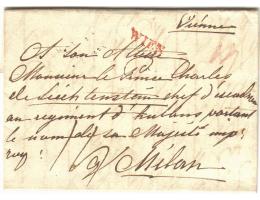 Vienne
WIEN
A son Altesse
Monsieur le Prince Charles
de Liechtenstein chef d'escadron
au regiment d'hulans portant
le nom de sa Majesté
à Milan